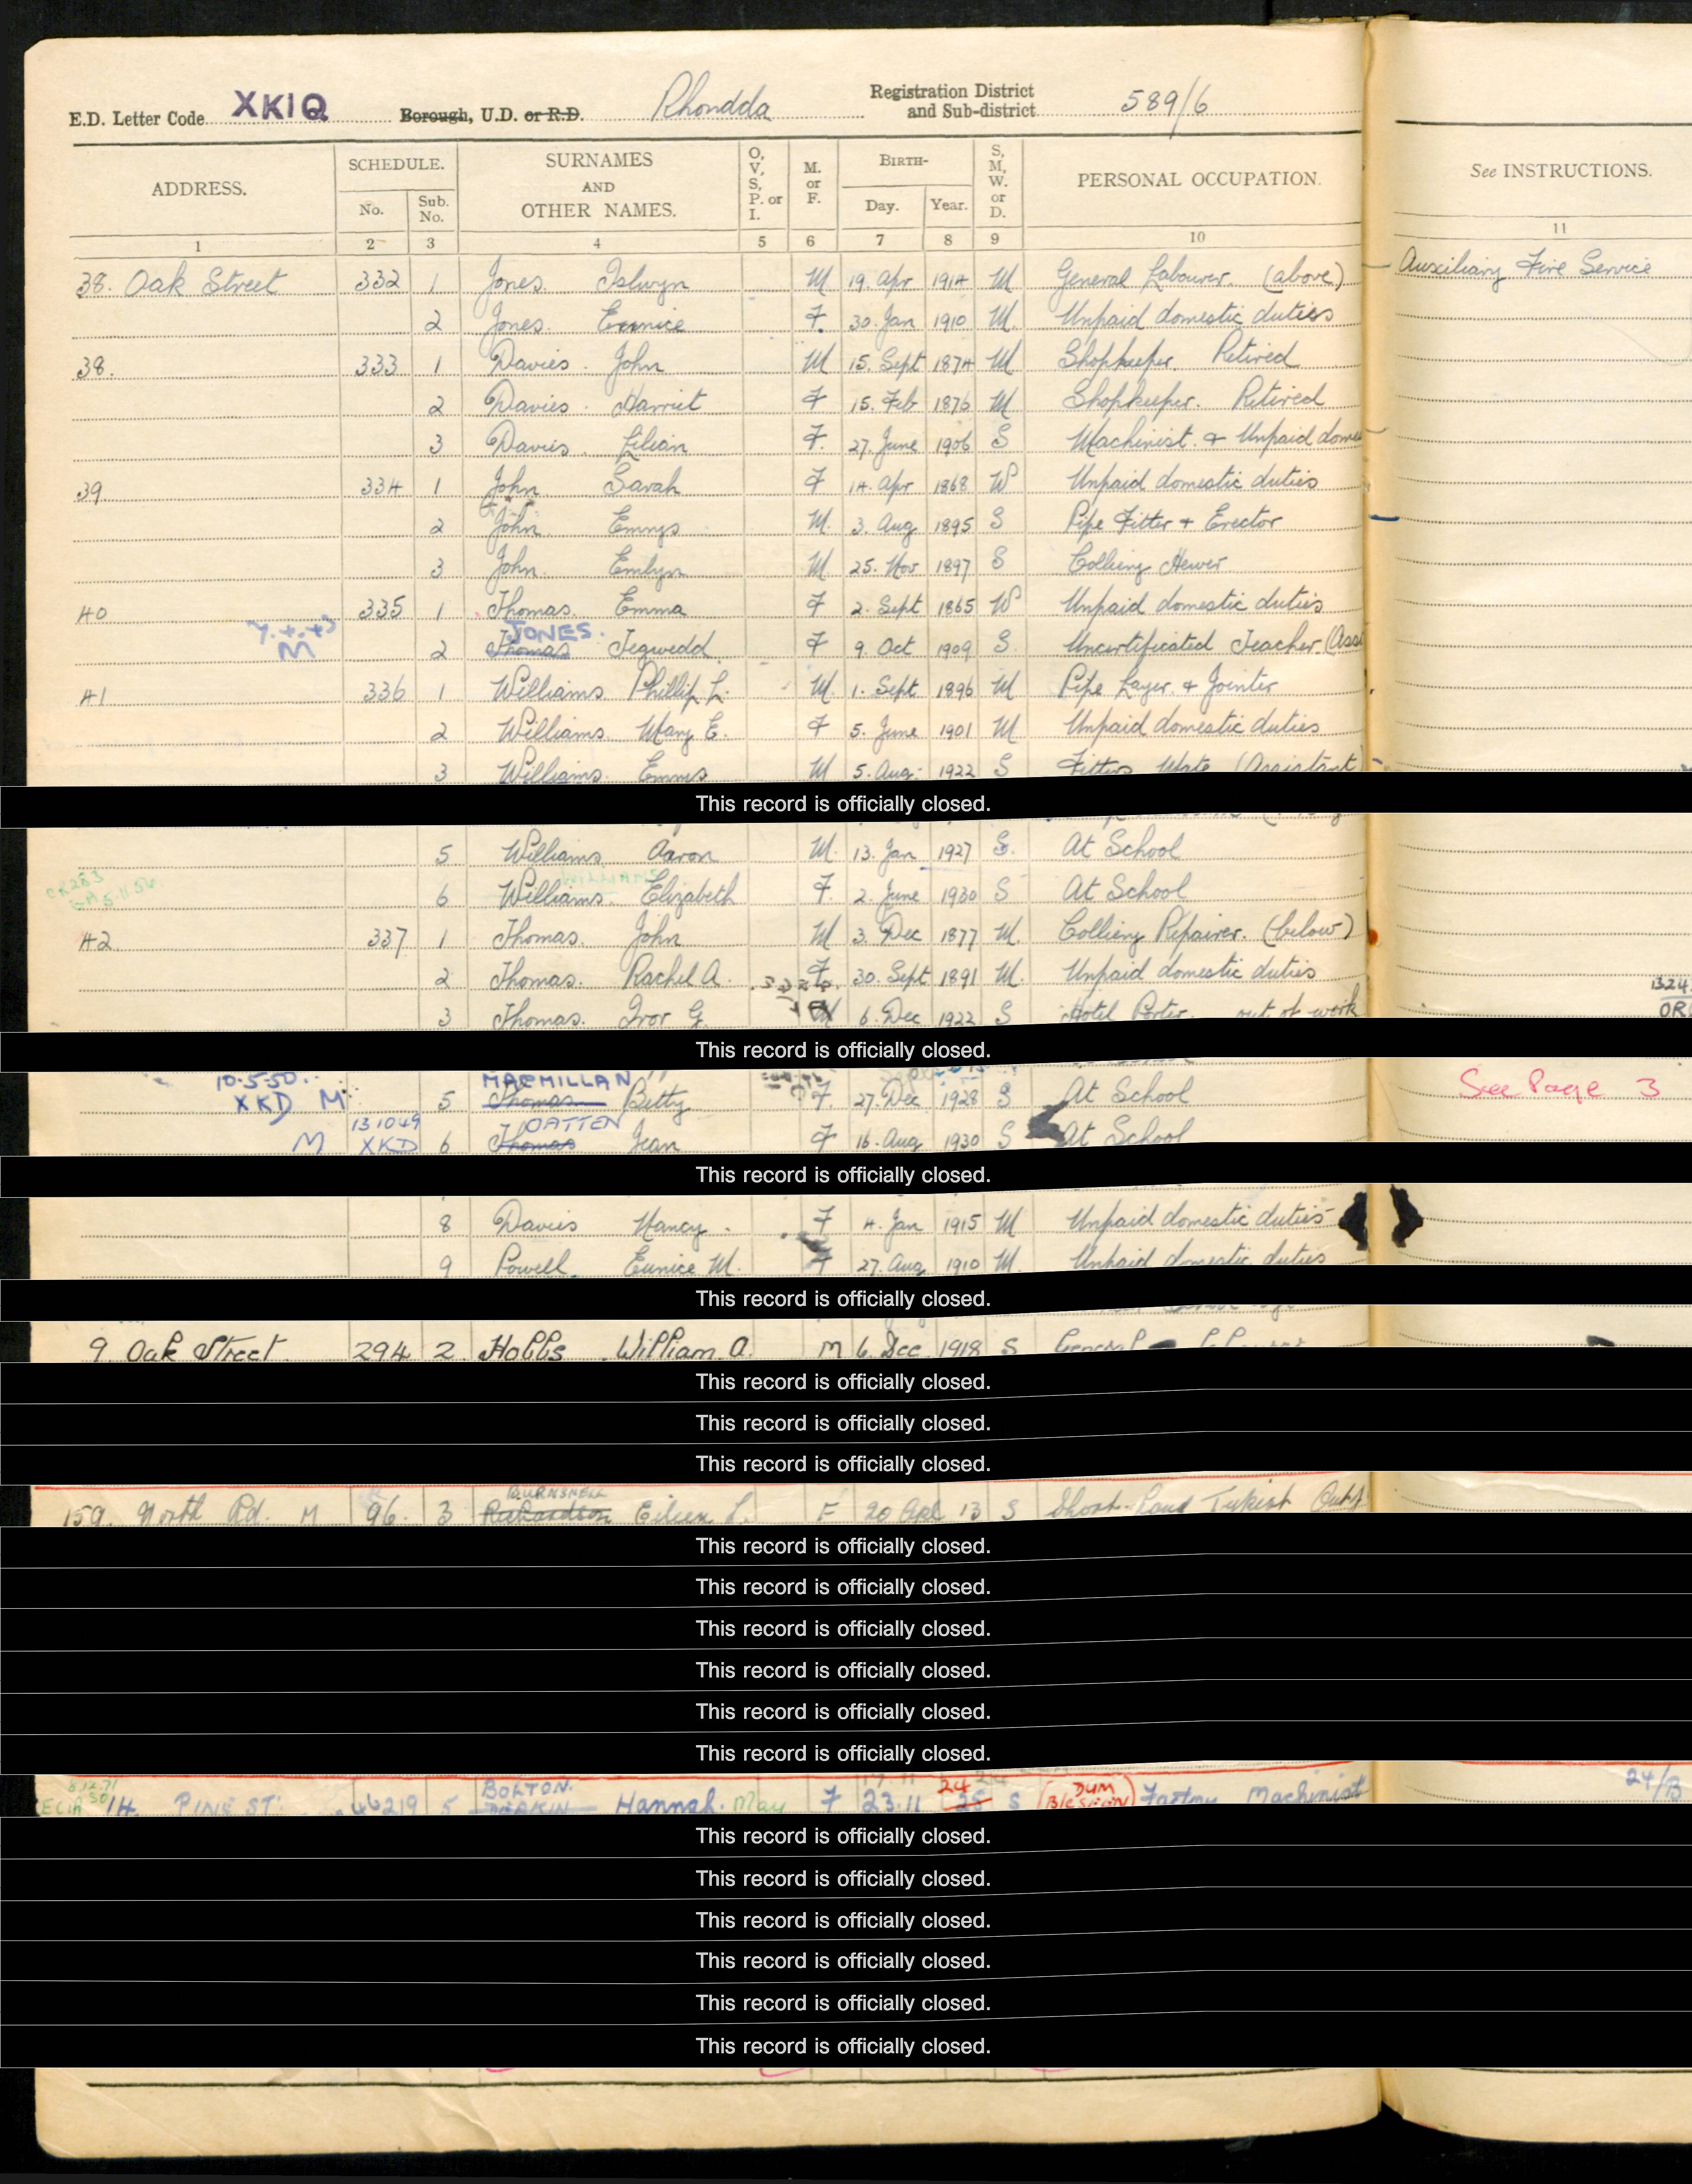 E.D. Letter Code XKIQ Borough, U.D. or R.D. Rhondda Registration District and Sub-district 589/6
ADDRESS. SCHEDULE. No. Sub. No. SURNAMES AND OTHER NAMES. O, V, S, P. or I. M. or F. BIRTH- Day. Year. S, M, W. or D. PERSONAL OCCUPATION. See INSTRUCTIONS.
1 2 3 4 5 6 7 8 9 10 11
38. Oak Street 332 1 Jones. Islwyn M 19. Apr 1914 M General Labourer. (above) Auxiliary Fire Service
2 Jones. Eunice F. 30. Jan 1910 M. Unpaid domestic duties
38. 333 1 Davies. John M 15. Sept 1874 M Shopkeeper. Retired
2 Davies. Harriet F 15. Feb 1876 M Shopkeeper. Retired
3 Davies. Lilian F. 27. June 1906 S Machinist. & Unpaid domes
39 334 1 John Sarah F 14. Apr 1868 W Unpaid domestic duties
2 John. Emrys M. 3. Aug 1895 S Pipe Fitter & Erector
3 John. Emlyn M 25. Nov 1897 S Colliery Hewer
40 335 1 Thomas. Emma F 2. Sept 1865 W Unpaid domestic duties
JONES.
M 2 Thomas Tegwedd F 9 Oct 1909 S. Uncertificated Teacher. (Assi
41 336 1 Williams Phillip L. M. 1. Sept 1896 M Pipe Layer. & Jointer
2 Williams. Mary E. F 5. June 1901 M Unpaid domestic duties
3 Williams. Emrys M 5. Aug. 1922 S Fitters Mate (Assistant)
This record is officially closed.
5 Williams Aaron M. 13. Jan 1927 S. At School
WILLIAMS
6 Williams. Elizabeth F. 2. June 1930 S At School
42 337 1 Thomas. John M 3. Dec 1877 M. Colliery Repairer. (below)
2 Thomas. Rachel A. F. 30. Sept 1891 M. Unpaid domestic duties
3 Thomas. Ivor G. M 6. Dec 1922 S Hotel Porter. out of work
This record is officially closed.
10.5.50. MACMILLAN
XKD M 5 Thomas Betty F. 27. Dec 1928 S At School See Page 3
131049 OATTEN
M XKD 6 Thomas Jean F 16. Aug 1930 S At School
This record is officially closed.
8 Davies Nancy. F 4. Jan 1915 M Unpaid domestic duties
9 Powell Eunice M. F 27. Aug 1910 M. Unpaid domestic duties
This record is officially closed.
9. Oak Street. 294 2. Hobbs William. A. M 6. Dec 1918 S General Labourer
This record is officially closed.
This record is officially closed.
This record is officially closed.
BURNSNELL
159. North Rd. M 96. 3 Richardson Eileen L. F 20 Apl 13 S Short-hand Typist
This record is officially closed.
This record is officially closed.
This record is officially closed.
This record is officially closed.
This record is officially closed.
This record is officially closed.
8.12.71 BOLTON. 24 DUM
14. PINE ST. 219 5 DEAKIN Hannah. May F 23.11 25 S Factory Machinist 24/B
This record is officially closed.
This record is officially closed.
This record is officially closed.
This record is officially closed.
This record is officially closed.
This record is officially closed.